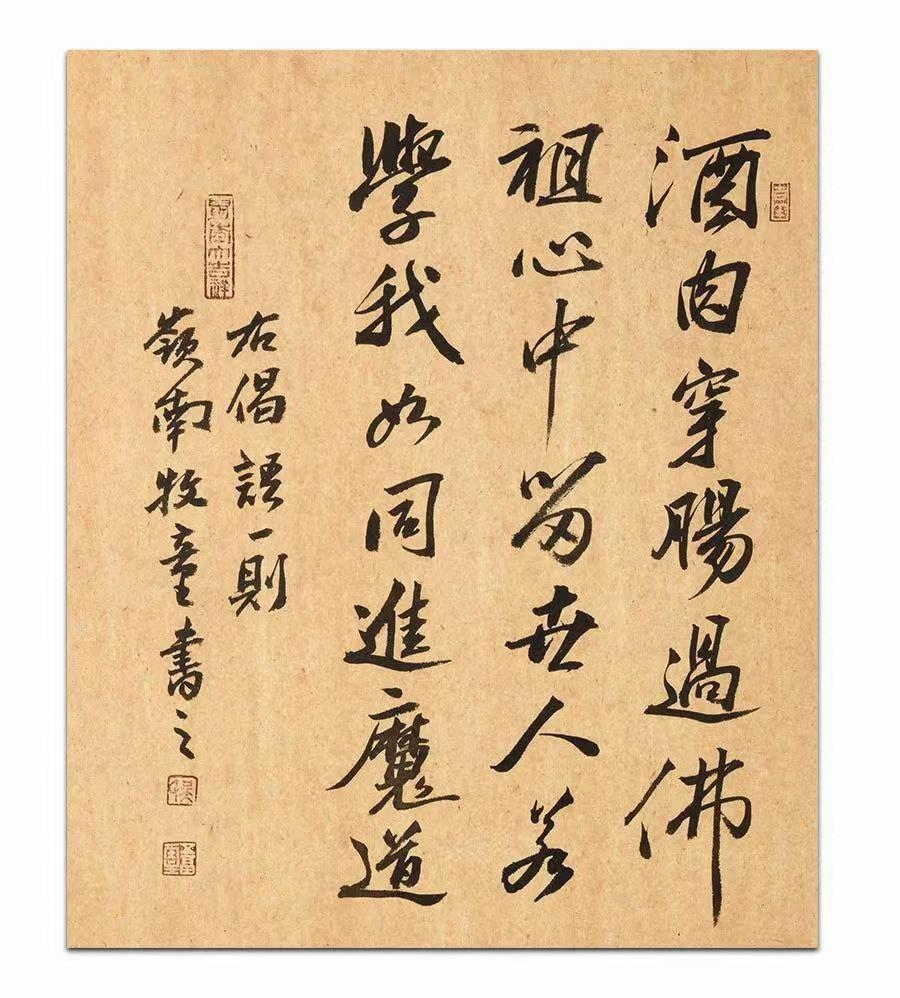 酒肉穿腸過佛
祖心中留世人若
學我如同進魔道
右偈語一則
嶺南牧童書之